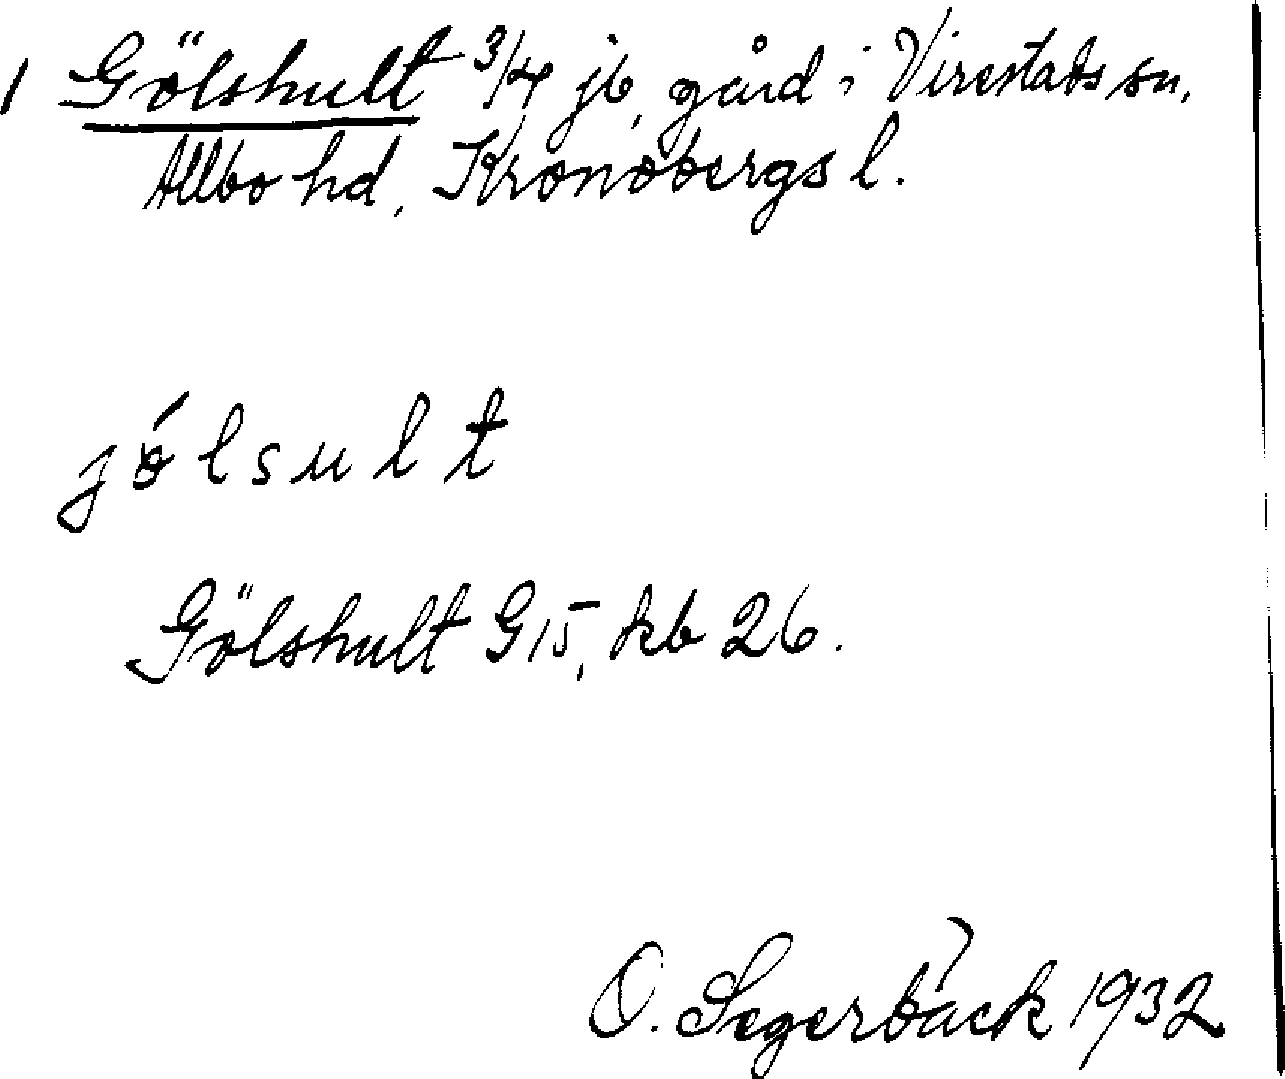 1 Gölshult 3/4 jb, gård i Virestads sn,
Allbo hd, Kronobergs l.
jólsult
Gölshult G15, kb 26.
O. Segerbäck 1932